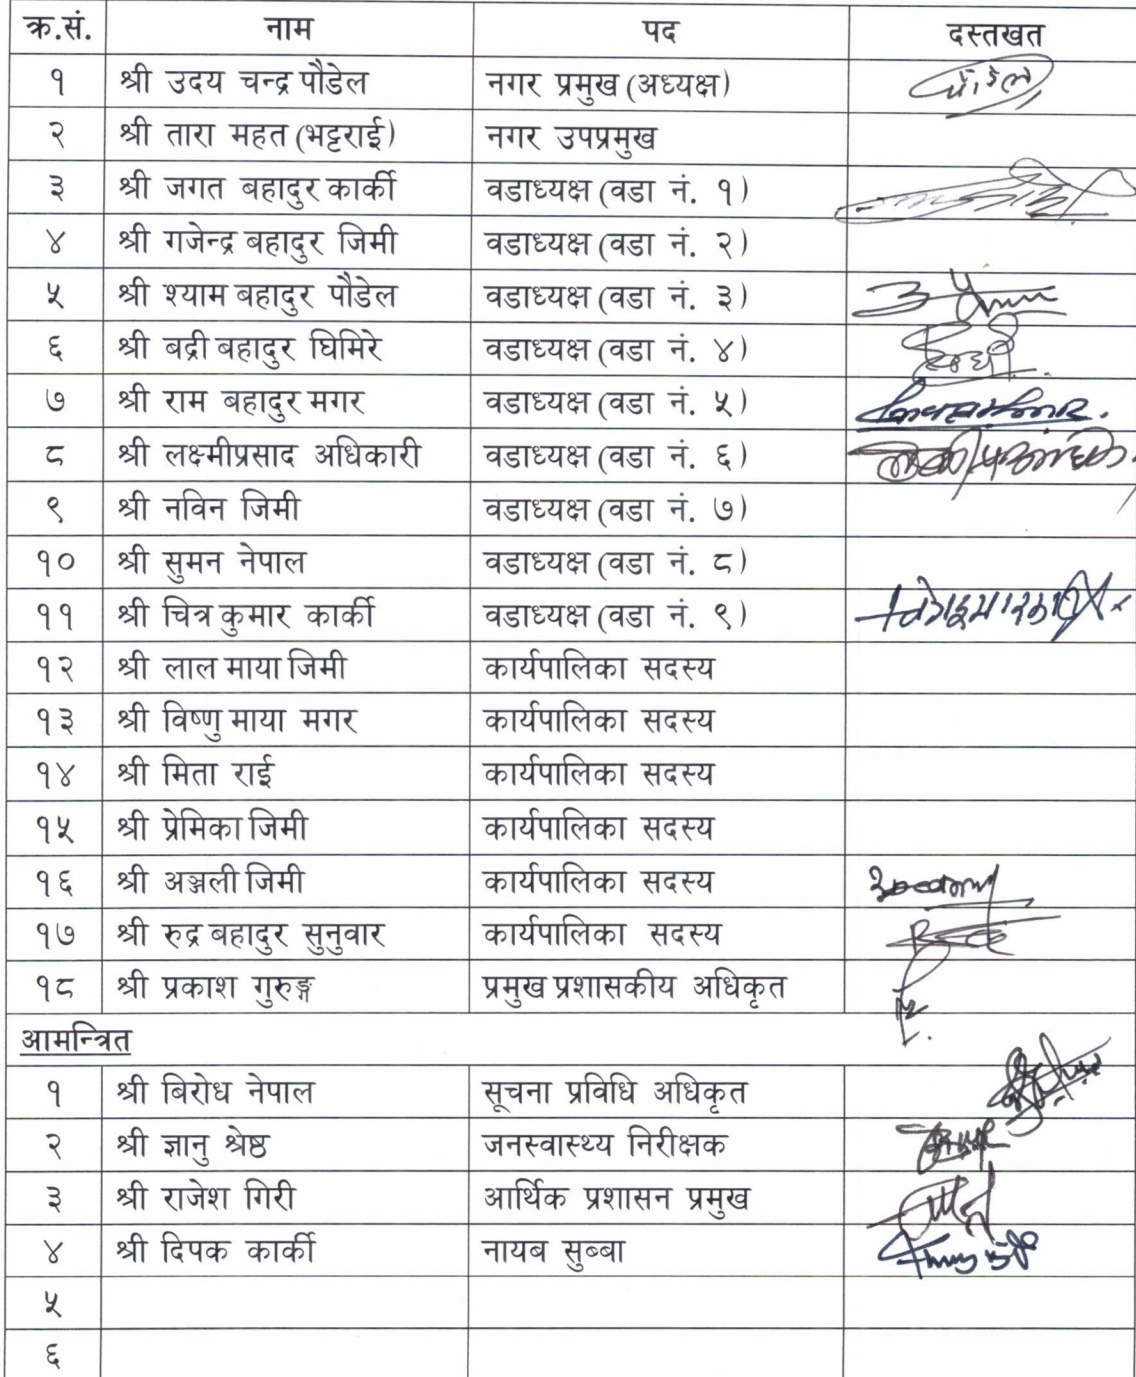 क्र.सं. नाम पद दस्तखत
१ श्री उदय चन्द्र पौडेल नगर प्रमुख (अध्यक्ष) पौडेल
२ श्री तारा महत (भट्टराई) नगर उपप्रमुख
३ श्री जगत बहादुर कार्की वडाध्यक्ष (वडा नं. १)
४ श्री गजेन्द्र बहादुर जिमी वडाध्यक्ष (वडा नं. २)
५ श्री श्याम बहादुर पौडेल वडाध्यक्ष (वडा नं. ३)
६ श्री बद्री बहादुर घिमिरे वडाध्यक्ष (वडा नं. ४)
७ श्री राम बहादुर मगर वडाध्यक्ष (वडा नं. ५)
८ श्री लक्ष्मीप्रसाद अधिकारी वडाध्यक्ष (वडा नं. ६)
९ श्री नविन जिमी वडाध्यक्ष (वडा नं. ७)
१० श्री सुमन नेपाल वडाध्यक्ष (वडा नं. ८)
११ श्री चित्र कुमार कार्की वडाध्यक्ष (वडा नं. ९)
१२ श्री लाल माया जिमी कार्यपालिका सदस्य
१३ श्री विष्णु माया मगर कार्यपालिका सदस्य
१४ श्री मिता राई कार्यपालिका सदस्य
१५ श्री प्रेमिका जिमी कार्यपालिका सदस्य
१६ श्री अञ्जली जिमी कार्यपालिका सदस्य
१७ श्री रुद्र बहादुर सुनुवार कार्यपालिका सदस्य
१८ श्री प्रकाश गुरुङ्ग प्रमुख प्रशासकीय अधिकृत
आमन्त्रित
१ श्री बिरोध नेपाल सूचना प्रविधि अधिकृत
२ श्री ज्ञानु श्रेष्ठ जनस्वास्थ्य निरीक्षक
३ श्री राजेश गिरी आर्थिक प्रशासन प्रमुख
४ श्री दिपक कार्की नायब सुब्बा
५
६